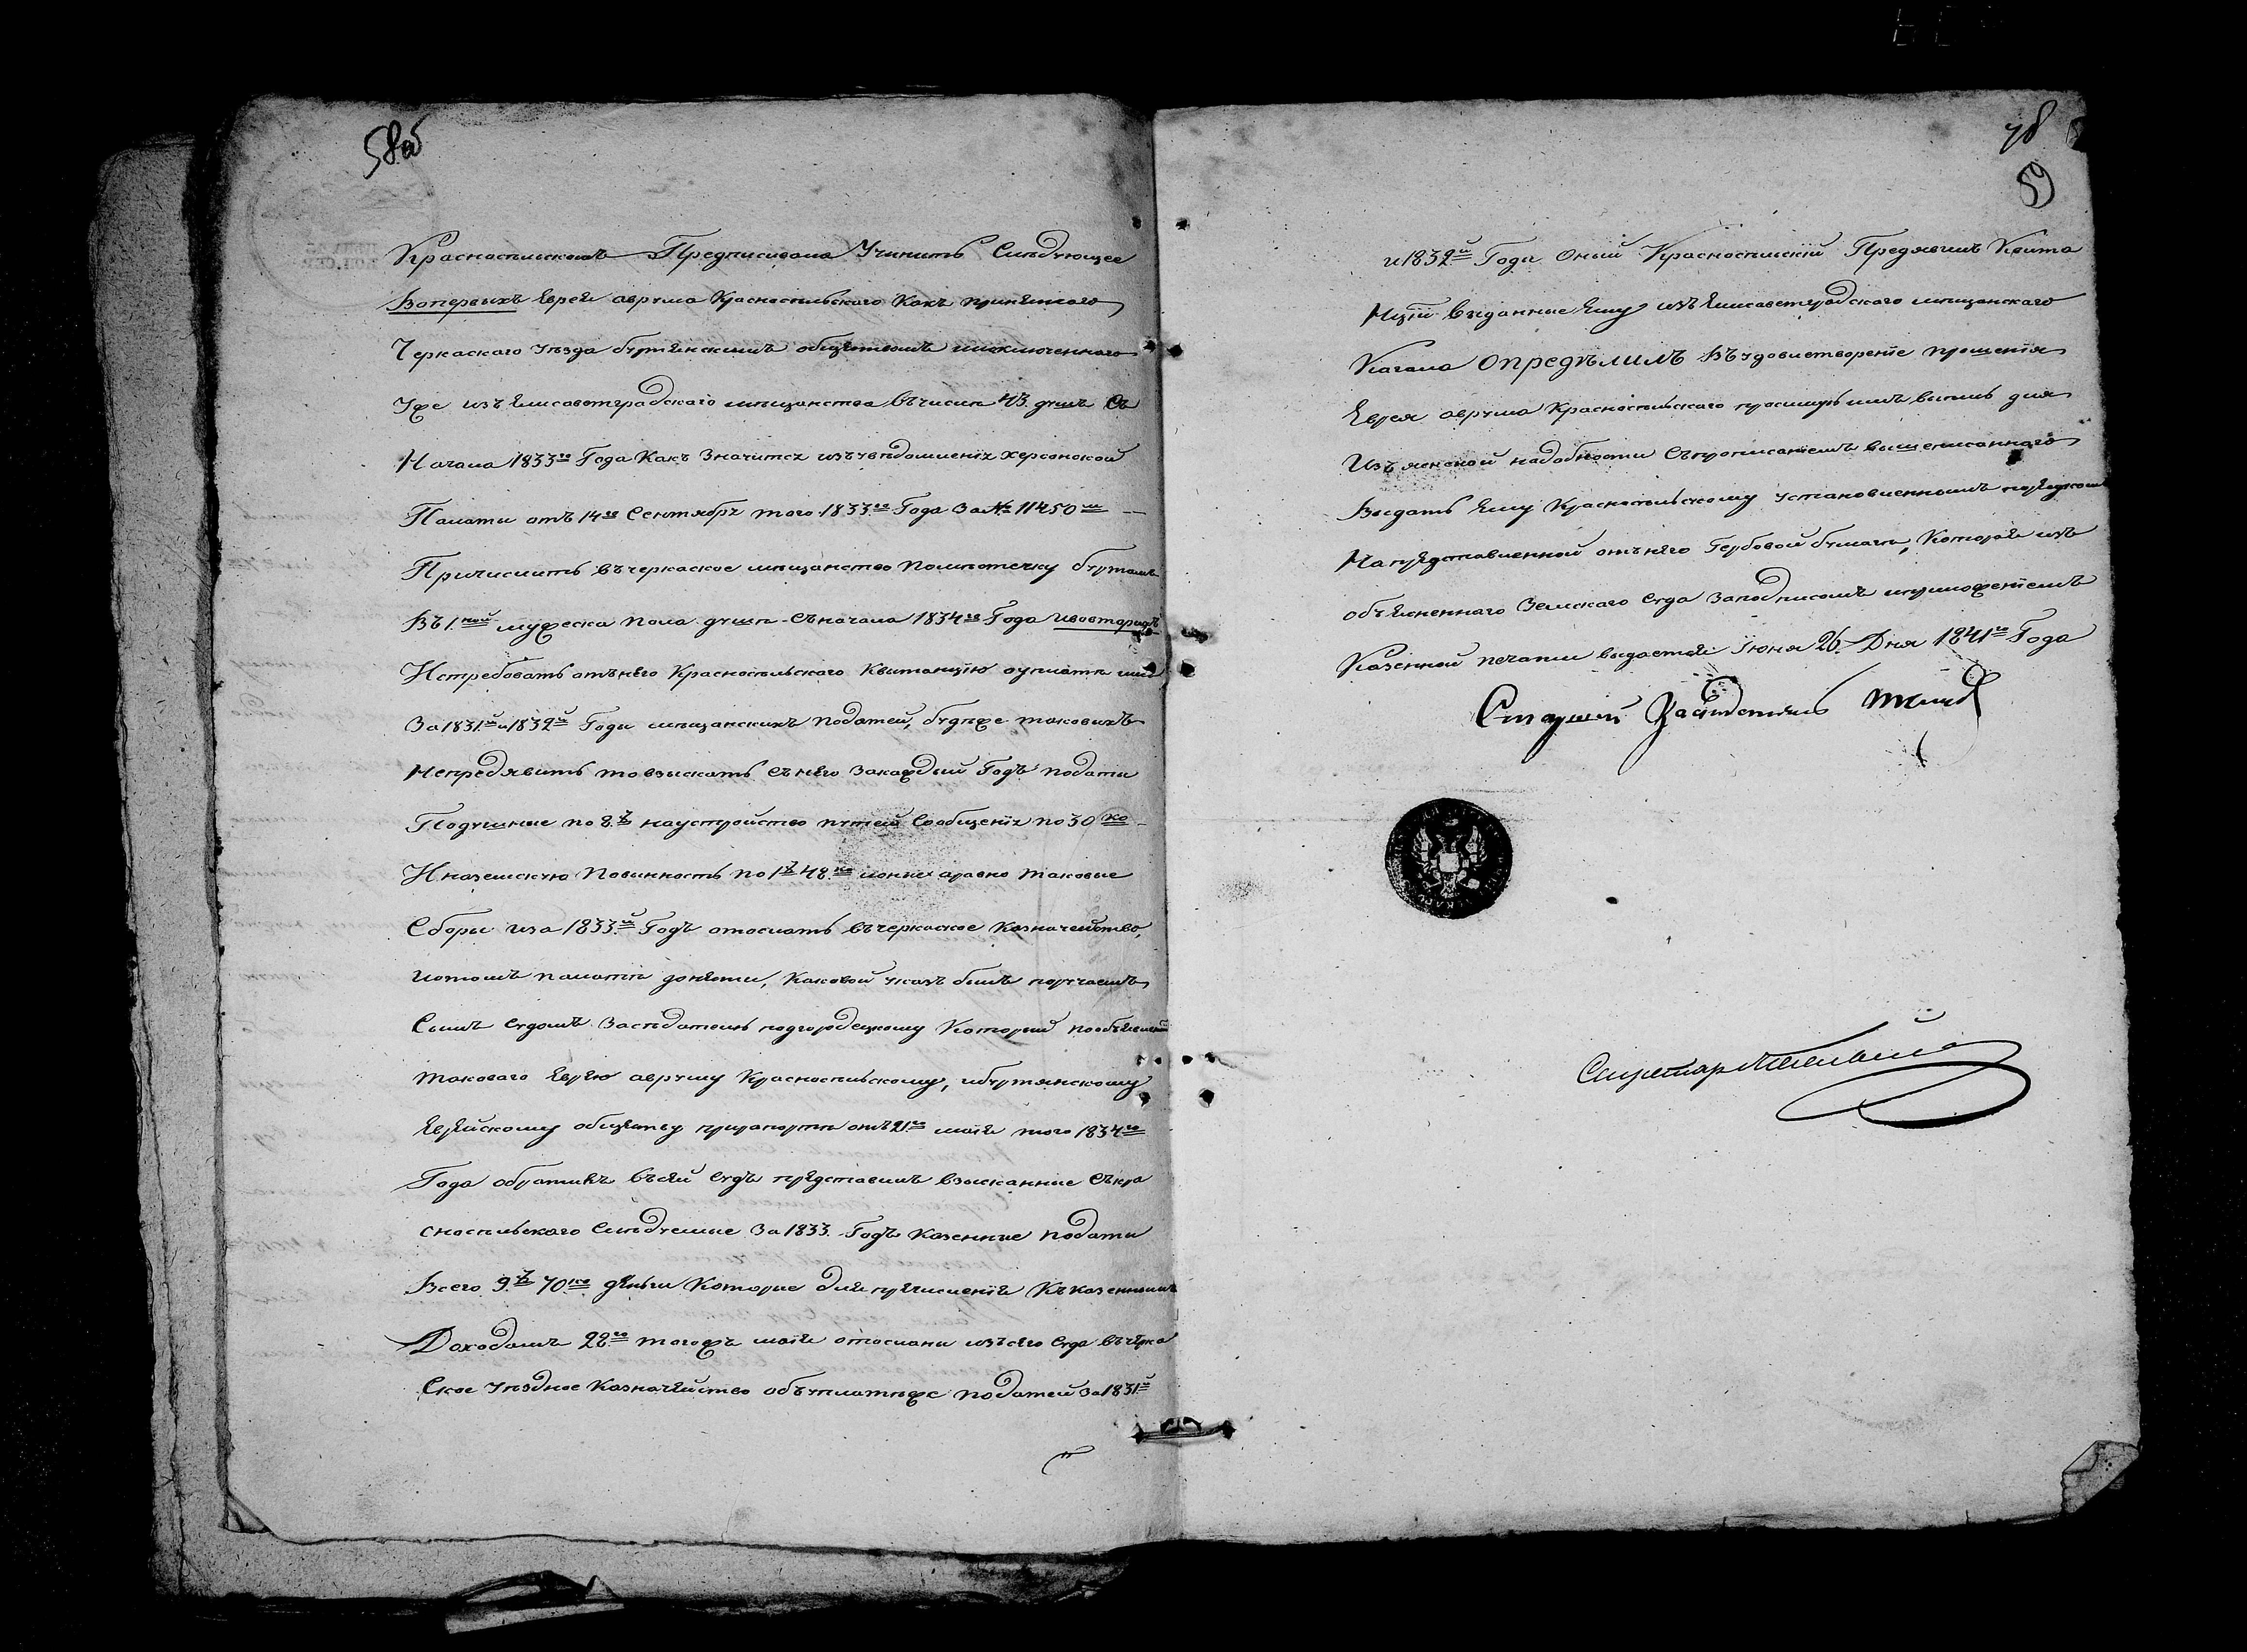 58об
Красносельскомъ Предписывала Учинить Следующее
Вопервыхъ Еврея аврума Красносельского Какъ принятого
Черкаского уезда буртянскимъ обществомъ иисключенного
Уже изъ Елисаветградского мещанства вчисле 43. душъ Съ
Начала 1833го Года Какъ Значится изъуведомления херсонской
Палаты отъ 14го Сентября того 1833го Года За № 11450м
Причислить въчеркаское мещанство Поместечку буртамъ
Въ 1.ной мужеска Пола душе Съначала 1834го Года ивовторыхъ
Истребовать отънего Красносельского Квитанцию оуплате имъ
За 1831й и 1832й Годы мещанскихъ Податей, будеже таковыхъ
Непредявить товзыскать Сънего Закаждый Годъ подати
Подушные по 8.р наустройство путей Сообщения по 30 ко
Иназемскую Повинность по 1р 48.ко ионые аравно таковые
Сборы иза 1833.й Годъ отослать въчеркаское Казначейство,
иотомъ палате донести, Каковой указъ былъ порученъ
Симъ Судомъ Заседателю подгородецкому Который пообъявлении
Таковаго Еврею авруму Красносельскому, ибуртянскому
Еврейскому обществу прирапорте отъ 21.го мая того 1834го
Года обративъ въсей Судъ представилъ взысканные Съкра
сносельского Следуемые За 1833. Годъ Казенные подати
Всего 9.р 70ко деньги Которые для причисления Къказеннымъ
Доходамъ 28.го тогожъ мая отосланы изъсего Суда въчерка
Ское Уездное Казначейство обуплатеже податей За 1831й
59
и 1832й Годы Оный Красносельский Предявилъ Квита
Нции выданные Ему изъ Елисаветградского мещанского
Кагала Определилъ Въудовлетворение прошения
Еврея аврума Красносельского просимую имъ выпись для
Изъясненной надобности Съпрописаниемъ вышеписанного
Выдать Ему Красносельскому установленнымъ порядкомъ
Напредставленной отънего Гербовой бумаге, Которая изъ
объясненного Земского Суда Заподписомъ иприложениемъ
Казенной печати выдается Июня 26. Дня 1841го Года
Старший Заседатель
Секретарь